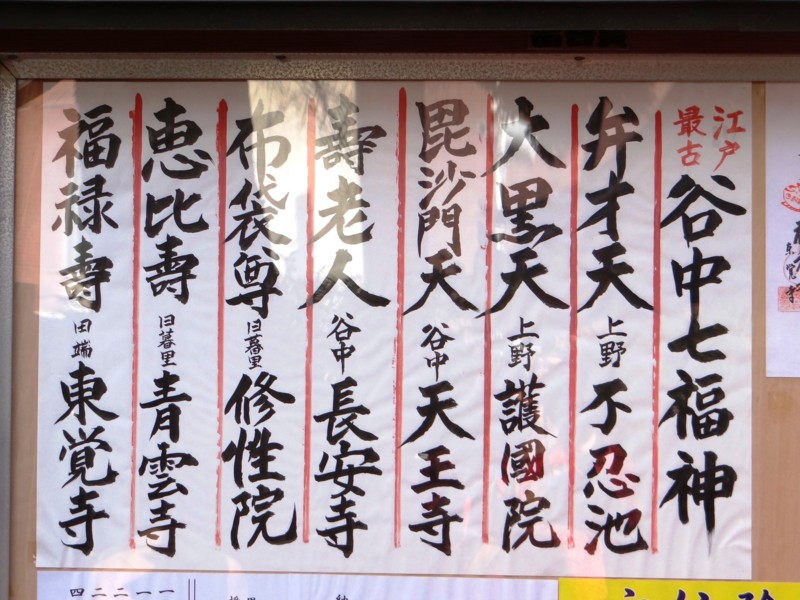 江戸
最古
谷中七福神
弁才天 上野 不忍池
大黒天 上野 護國院
毘沙門天 谷中 天王寺
壽老人 谷中 長安寺
布袋尊 旧暮里 修性院
恵比壽 旧暮里 青雲寺
福禄壽 田端 東覚寺